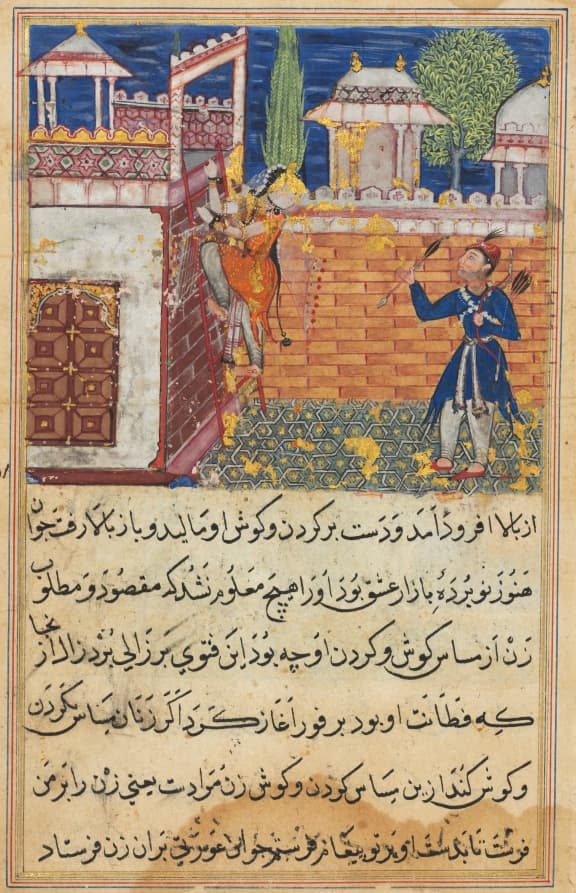 از بالا فرود آمد و دست بر کردن و کوش او مالید و باز بالا رفت جوان
هنوز نو بردهٔ بازار عشق بود او را هیچ معلوم نشد که مقصود و مطلوب
زن از مساس کوش و کردن او چه بود این فتوی بر زالی برد زال از آنجا
که فطانت او بود بر فور آغاز کرد اکر زنان مساس کردن
و کوش کنند ازین مساس کردن و کوش زن مرادست یعنی زن را بر من
فرست تا بدست او بر تو پیغام فرستم جوان عورتی بران زن فرستاد